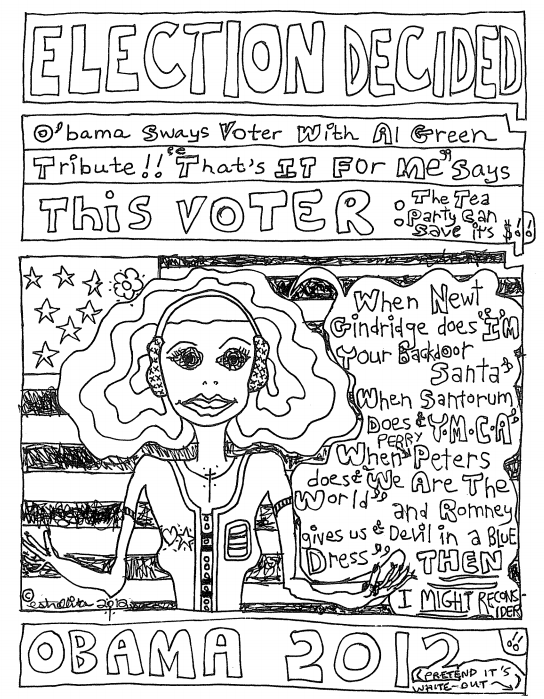 ELECTION DECIDED
O'bama Sways Voter With Al Green
Tribute!! "That's IT FOR Me" Says
This VOTER: The Tea
Party Can
Save it's $!!
When Newt
Gindridge does "I'M
Your Backdoor
Santa"
When Santorum
Does "Y.M.C.A"
PERRY
When Peters
does "We Are The
World"
and Romney
gives us "Devil in a BLUE
Dress", THEN
I MIGHT RECONS-
IDER
© estrelita 2012
OBAMA 2012
(PRETEND IT'S
WHITE-OUT~)